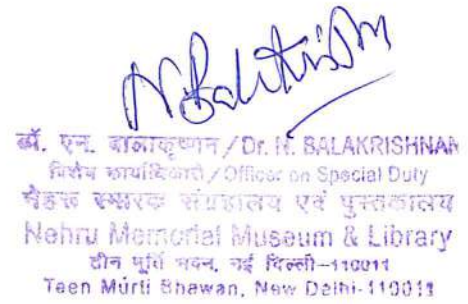 N Balakrishnan
डॉ. एन. बालाकृष्णन / Dr. N. BALAKRISHNAN
विशेष कार्याधिकारी / Officer on Special Duty
नेहरू स्मारक संग्रहालय एवं पुस्तकालय
Nehru Memorial Museum & Library
तीन मूर्ति भवन, नई दिल्ली-110011
Teen Murti Bhawan, New Delhi-110011